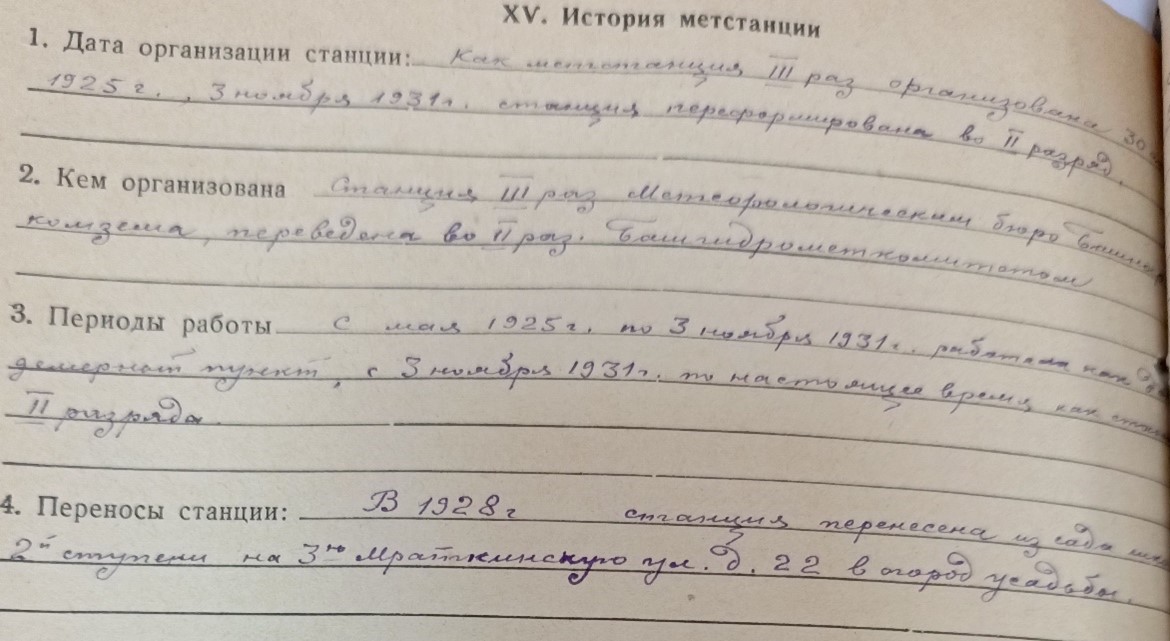 XV. История метстанции
1. Дата организации станции: Как метстанция III раз организована 30
1925 г., 3 ноября 1931 г. станция переформирована во II разряд.
2. Кем организована Станция III раз Метеорологическим бюро
комзема, переведена во II раз. Башгидрометкомитетом
3. Периоды работы с мая 1925 г. по 3 ноября 1931 г. работала как
демерный пункт, с 3 ноября 1931 г. по настоящее время как
II разряда.
4. Переносы станции: В 1928 г станция перенесена из сада
2й ступени на 3ю Мраткинскую ул. д. 22 в огород усадьбы.